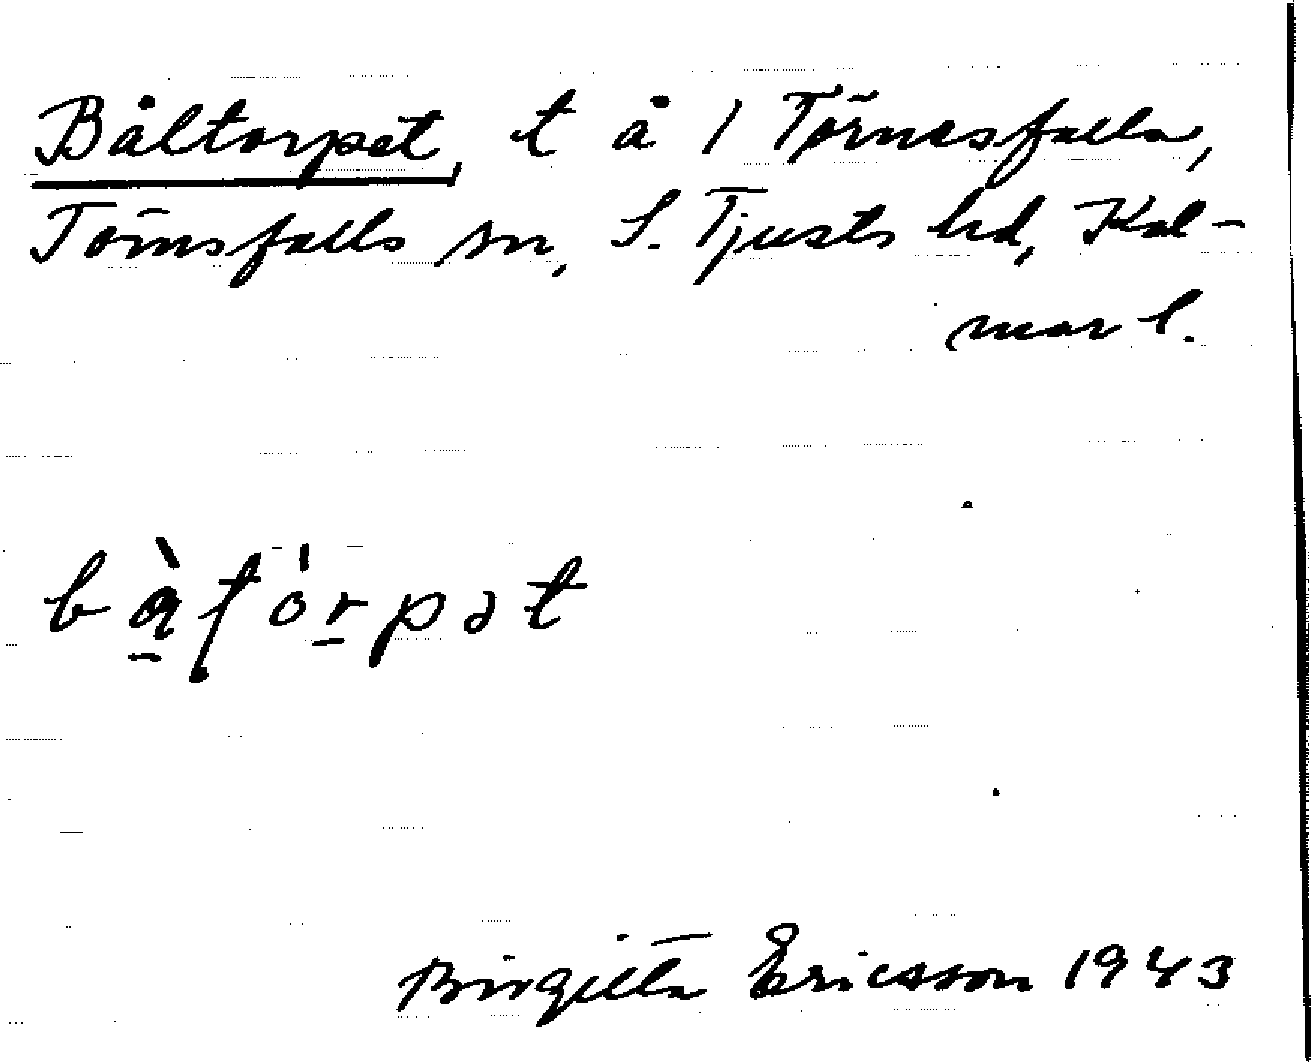 Båltorpet, t å 1 Törnesfalla,
Törnsfalls sn, S. Tjusts hd, Kal-
mar l.
Birgitta Ericsson 1943